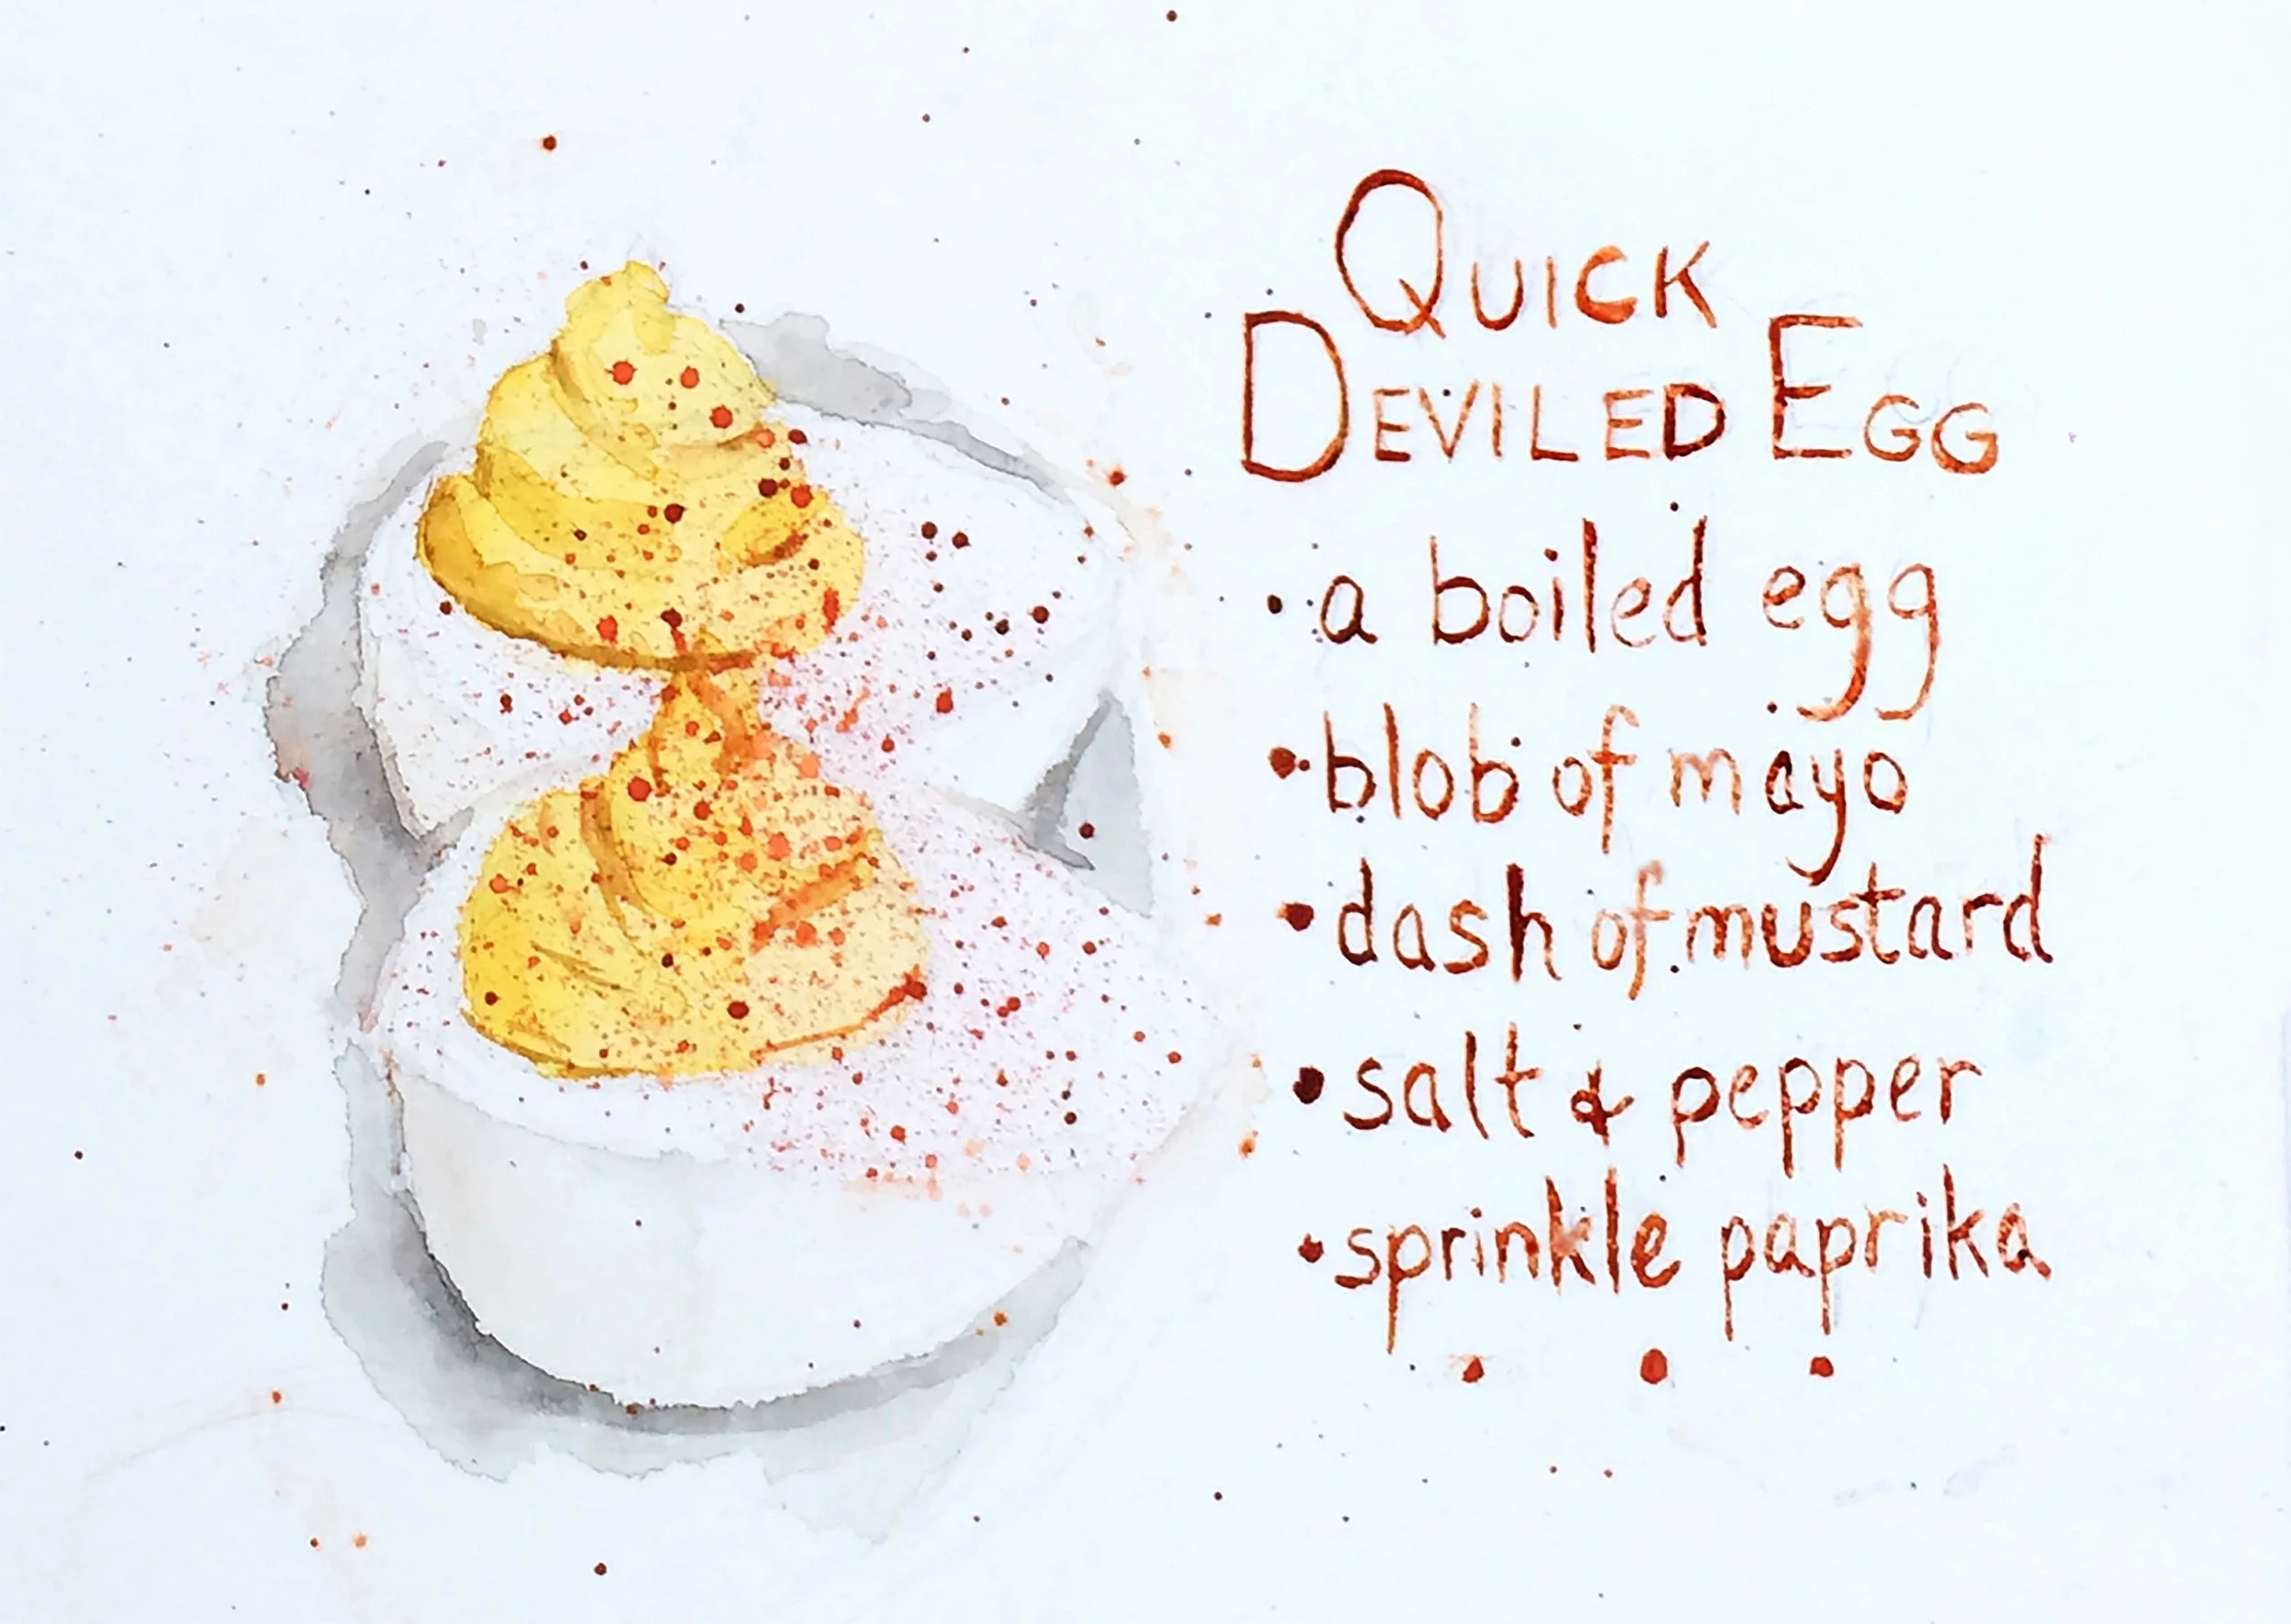 QUICK
DEVILED EGG
• a boiled egg
• blob of mayo
• dash of mustard
• salt & pepper
• sprinkle paprika
• • •